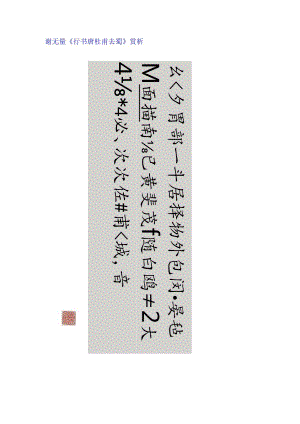 谢无量《行书唐杜甫去蜀》赏析
幺く夕胃部一斗居择物外包闵•晏毡
M面描南⅛已黄斐茂f随白鸥≠2大
4⅛*4必、次次佐#甫く城，音